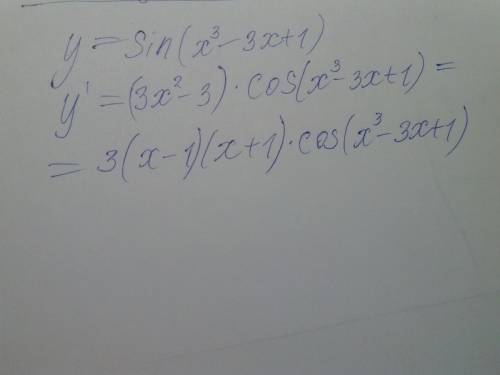 y = sin(x³ - 3x + 1)
y' = (3x² - 3) · cos(x³ - 3x + 1) =
= 3(x - 1)(x + 1) · cos(x³ - 3x + 1)